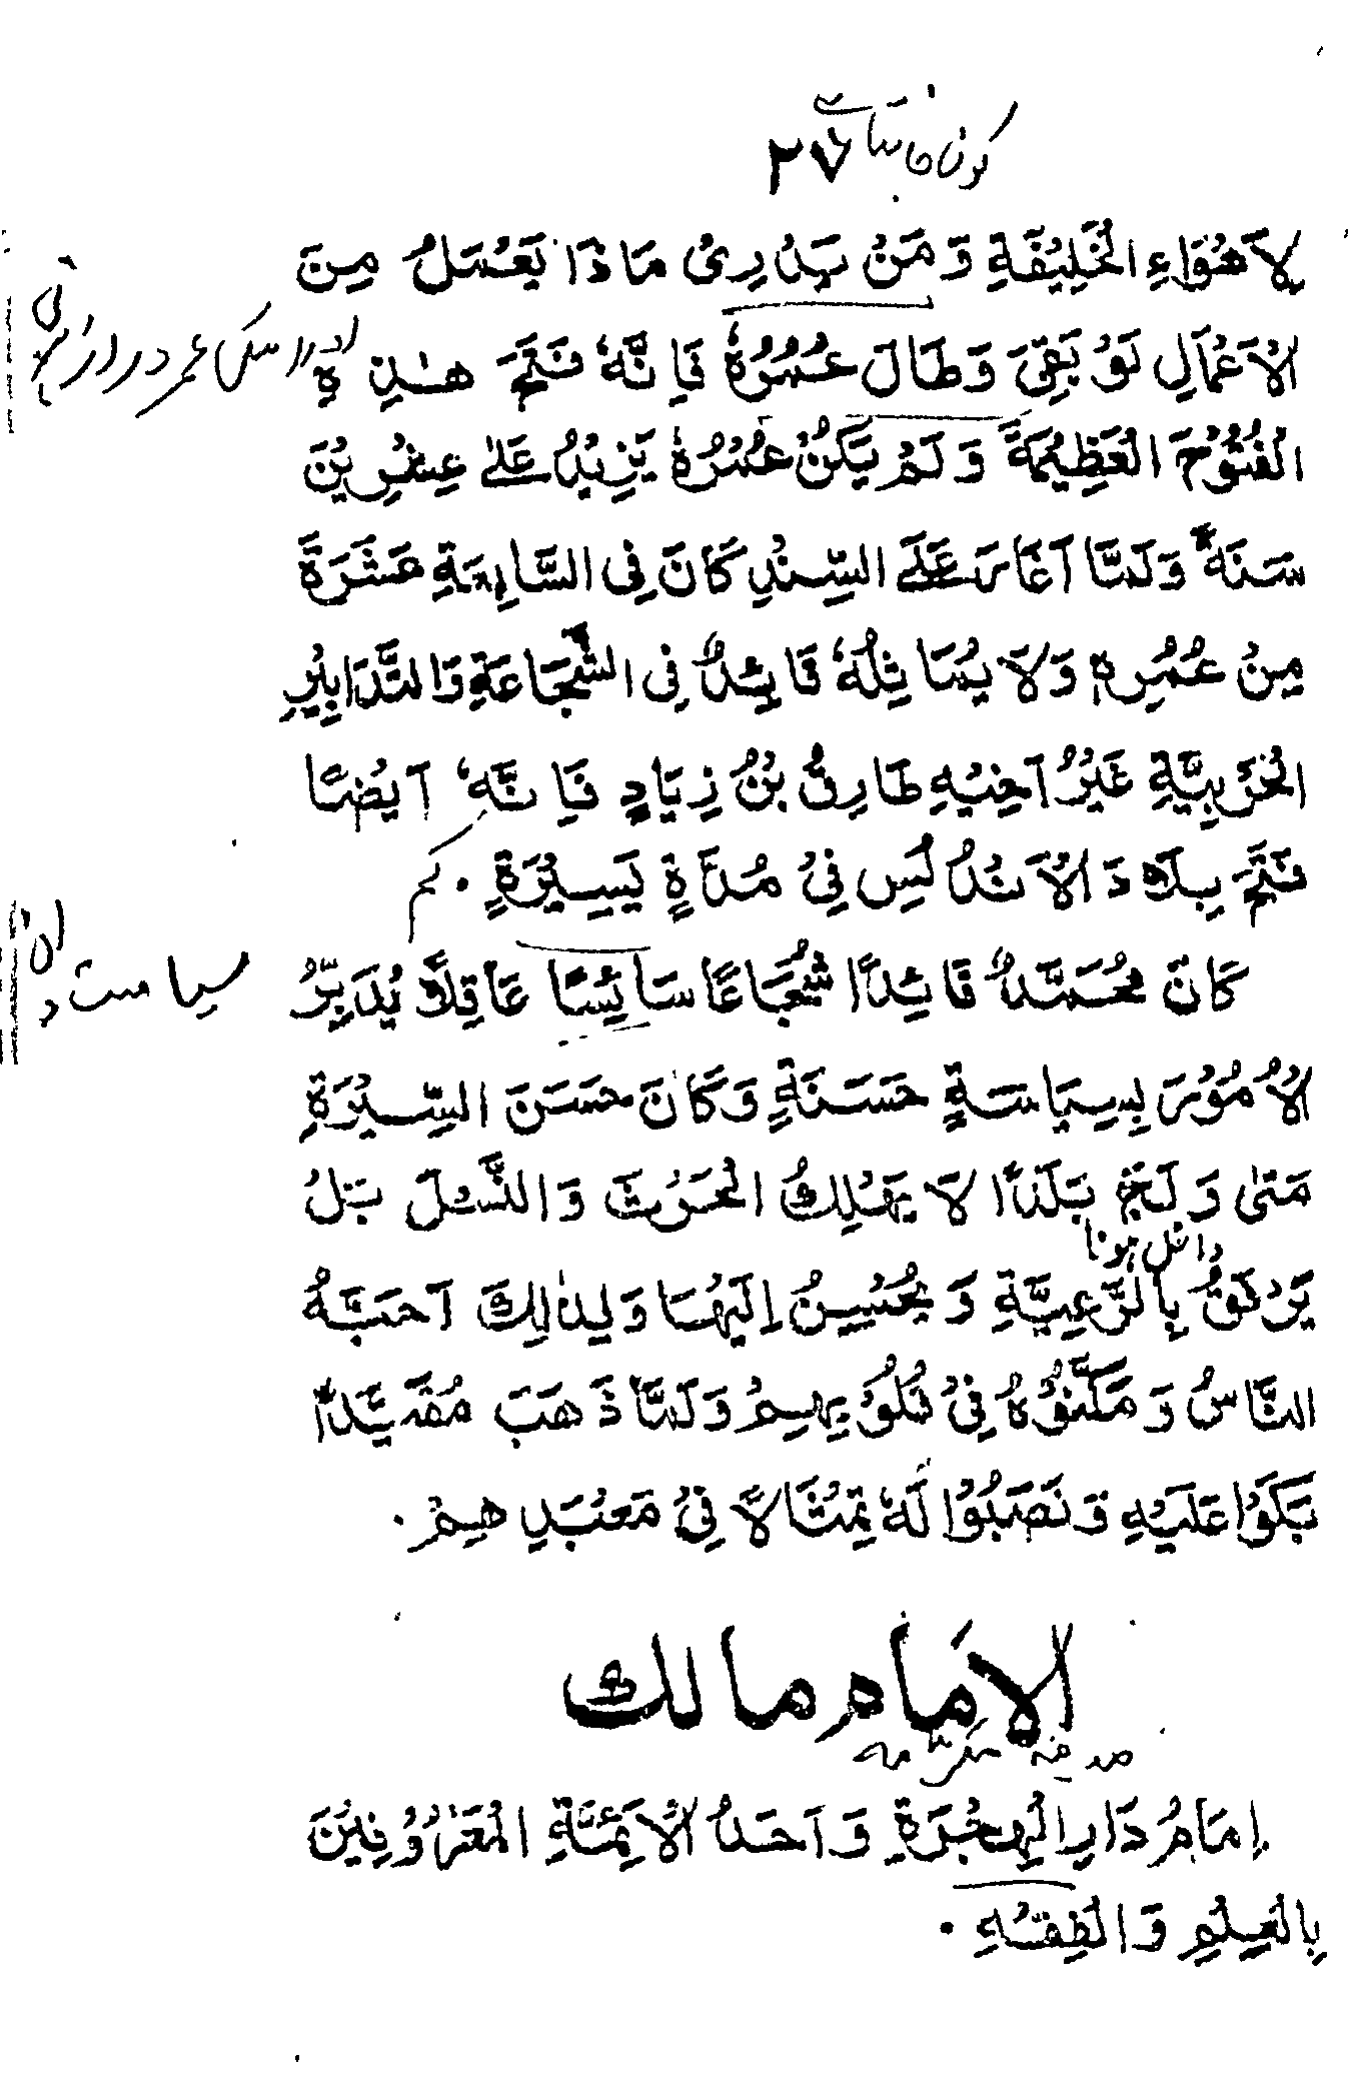 کون جانتا ہے
۲۷
لِاَهْوَاءِ الْخَلِيْفَةِ وَمَنْ يَدْرِىْ مَاذَا يَعْمَلُ مِنَ
الْاَعْمَالِ لَوْ بَقِىَ وَطَالَ عُمُرُهٗ فَاِنَّهٗ فَتَحَ هٰذِهِ
اور اسکی عمر دراز ہوتی
الْفُتُوْحَ الْعَظِيْمَةَ وَلَمْ يَكُنْ عُمْرُهٗ يَزِيْدُ عَلٰى عِشْرِيْنَ
سَنَةً وَلَمَّا اَغَارَ عَلَى السِّنْدِ كَانَ فِى السَّابِعَةِ عَشَرَةَ
مِنْ عُمُرِهٖ وَلَا يُمَاثِلُهٗ قَائِدٌ فِى الشَّجَاعَةِ وَالتَّدَابِيْرِ
الْحَرْبِيَّةِ غَيْرُ اَخِيْهِ طَارِقُ بْنُ زِيَادٍ فَاِنَّهٗ اَيْضًا
فَتَحَ بِلَادَ الْاَنْدُلُسِ فِىْ مُدَّةٍ يَسِيْرَةٍ .
کم
كَانَ مُحَمَّدٌ قَائِدًا شُجَاعًا سَائِسًا عَاقِلًا يُدَبِّرُ
سیاست دان
الْاُمُوْرَ بِسِيَاسَةٍ حَسَنَةٍ وَكَانَ حَسَنَ السِّيْرَةِ
مَتٰى وَلَجَ بَلَدًا لَا يُهْلِكُ الْحَرْثَ وَالنَّسْلَ بَلْ
داخل ہونا
يَرْفَقُ بِالرَّعِيَّةِ وَيُحْسِنُ اِلَيْهَا وَلِذٰلِكَ اَحَبَّهُ
النَّاسُ وَمَكَّنُوْهُ فِىْ قُلُوْبِهِمْ وَلَمَّا ذَهَبَ مُقَيَّدًا
بَكَوْا عَلَيْهِ وَنَصَبُوْا لَهٗ تِمْثَالًا فِىْ مَعْبَدِهِمْ .
الامام مالك
اِمَامُ دَارِ الْهِجْرَةِ وَاَحَدُ الْاَئِمَّةِ الْمَعْرُوْفِيْنَ
بِالْعِلْمِ وَالْفِقْهِ .